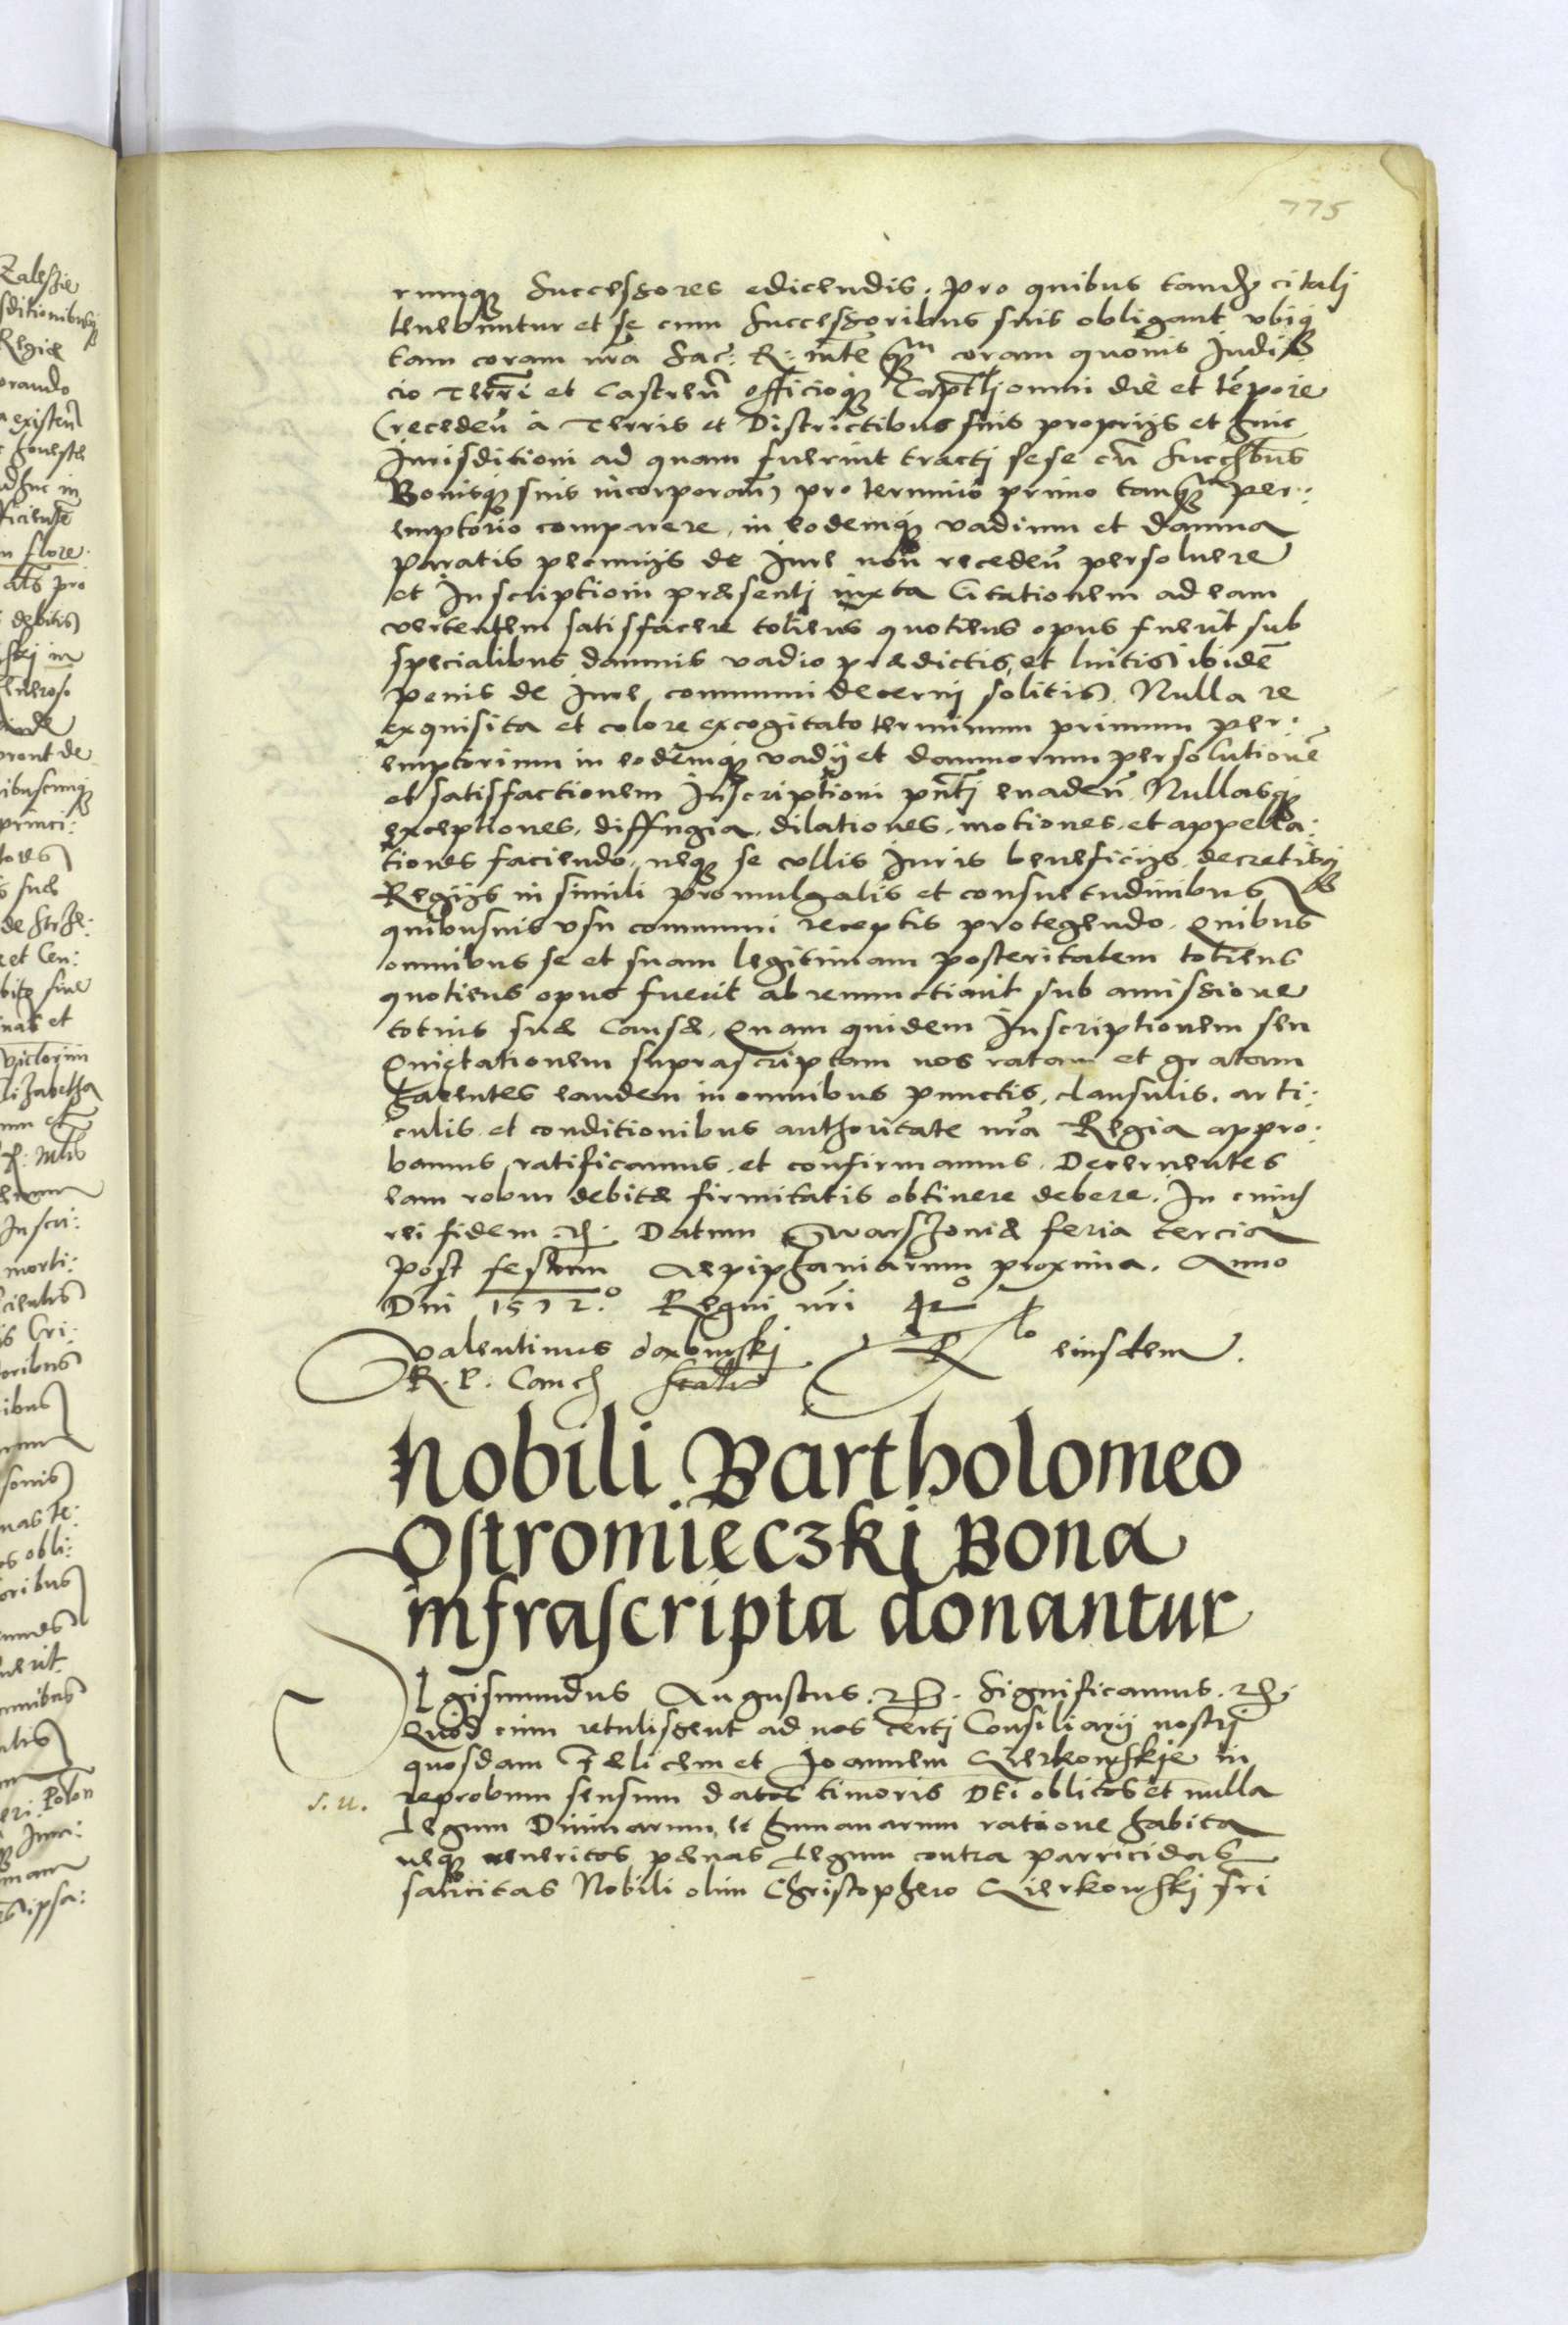 775
rumq; Successores edicendis. Pro quibus tandē citatj
tenebuntur et se cum Successoribus suis obligant ubiq;
tam coram nrā Sac: R: mte q̈m coram quovis Judi-
cio Terri et Castren̄ officioq; Capttj omni die et tēpore
(receden̄ à Terris et Districtibus suis proprijs et huic
Jurisditioni ad quam fuerint tractj sese cū Succesbus
Bonisq; suis incorporan̄) pro termino primo tanq̄ per:
emptorio comparere, in eodemq; vadium et damna
paratis pecunijs de Jure non receden̄ persoluere
et Inscriptioni præsentj iuxta Citationem ad eam
vertentem satisfacere totiens quotiens opus fuerit sub
specialibus damnis vadio prædictis, et luitis ibidē
penis de Jure communi decernj solitis. Nulla re
exquisita et colore excogitato terminum primum per:
emptorium in eodēmq; vadij et damnorum persolutionē
et satisfactionem Inscriptioni pn̄tj evaden̄. Nullasq;
exceptiones, diffugia, dilationes, motiones, et appella:
tiones faciendo, neq; se ullis Juris beneficijs decretisq;
Regijs in simili promulgatis et consuetudinibus
quibusvis usu communi receptis protegendo. Quibus
omnibus se et suam legitimam posteritatem totiens
quotiens opus fuerit abrenunctiant sub amissione
totius suæ Causæ. Quam quidem Inscriptionem seu
Quietationem suprascriptam nos ratam et gratam
habentes eandem in omnibus punctis, clausulis, arti:
culis et conditionibus authoritate nrā Regia appro:
bamus, ratificamus, et confirmamus. Decernentes
eam robur debitæ firmitatis obtinere debere. In cuius
rei fidem &. Datum Warszoniæ feria tercia
post festum Aepiphaniarum proxima. Anno
Dni 1572.º Regni nri 42º
Valentinus daxbmskj Rlo eiusdem.
R. P. Canch
Nobili Bartholomeo
Ostromieczki Bona
infrascripta donantur
Sgismundus Augustus. &. Significamus. &.
Quod cum retulissent ad nos certj Consiliarij nostrj
quosdam Fælicem et Joannem Cierkowskie in
reprobum sensum datos timoris Dei oblitos et nulla
s. u.
Legum Divinarum et humanarum ratione habita
neq; veneritos pænas Legum contra parricidas
sancitas Nobili olim Christophero Cierkowskj fri